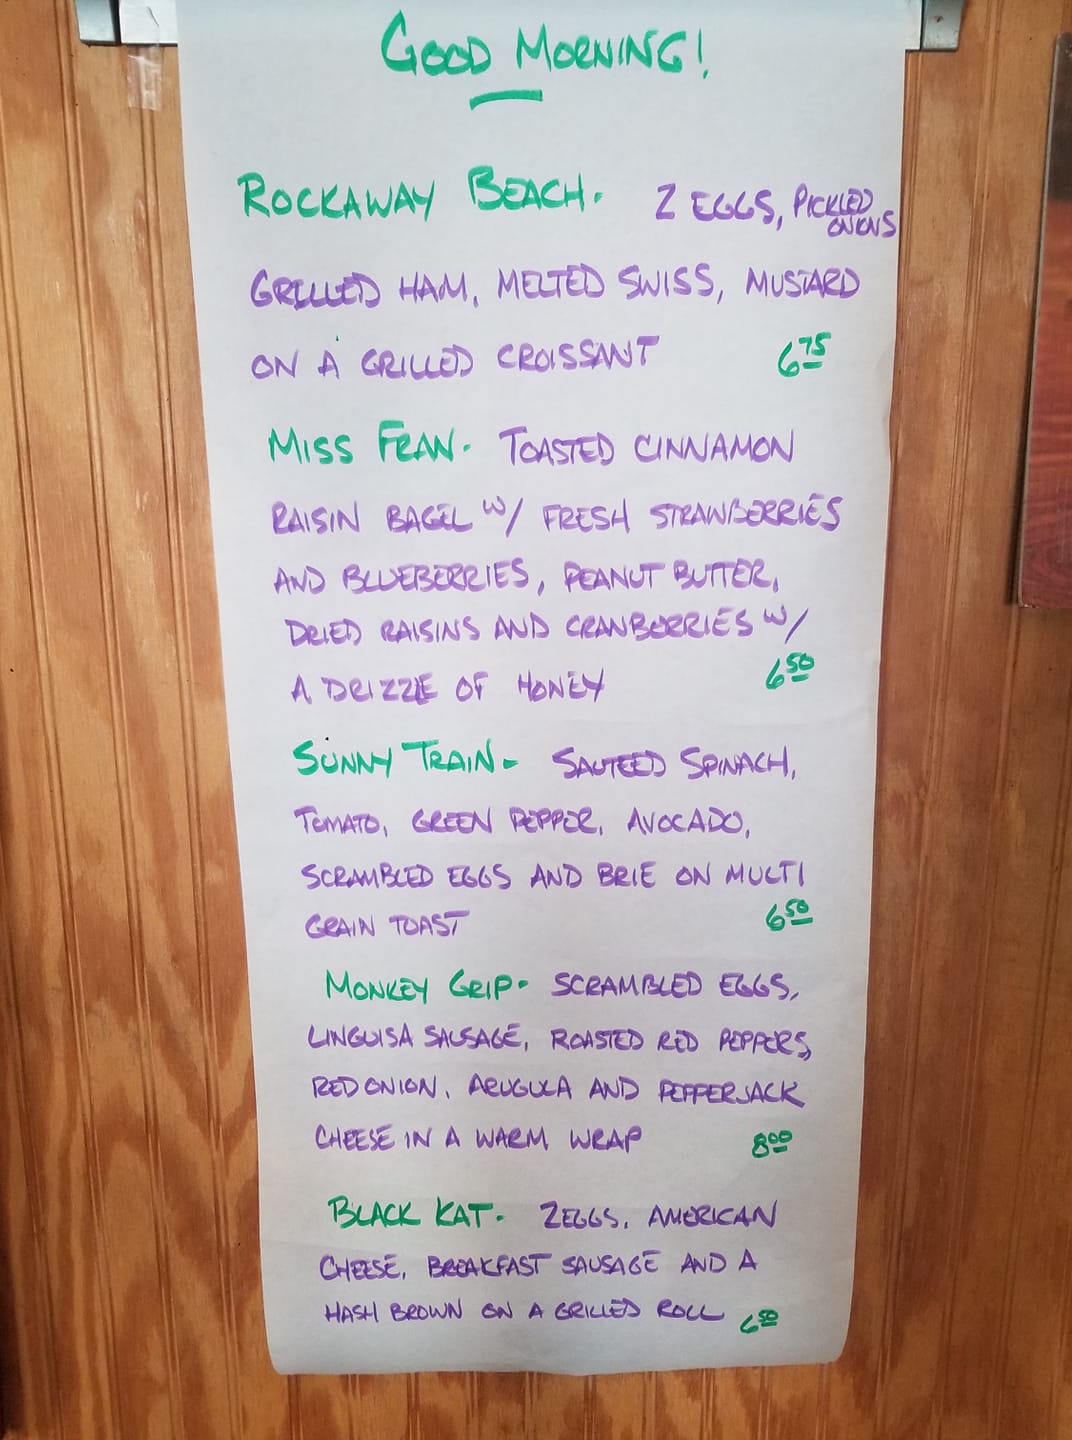 GOOD MORNING!
ROCKAWAY BEACH. 2 EGGS, PICKLED ONIONS
GRILLED HAM, MELTED SWISS, MUSTARD
ON A GRILLED CROISSANT 6.75
MISS FRAN. TOASTED CINNAMON
RAISIN BAGEL W/ FRESH STRAWBERRIES
AND BLUEBERRIES, PEANUT BUTTER,
DRIED RAISINS AND CRANBERRIES W/
A DRIZZLE OF HONEY 6.50
SUNNY TRAIN- SAUTEED SPINACH,
TOMATO, GREEN PEPPER, AVOCADO,
SCRAMBLED EGGS AND BRIE ON MULTI
GRAIN TOAST 6.50
MONKEY GRIP- SCRAMBLED EGGS,
LINGUISA SAUSAGE, ROASTED RED PEPPERS,
RED ONION, ARUGULA AND PEPPERJACK
CHEESE IN A WARM WRAP 8.00
BLACK KAT- 2 EGGS, AMERICAN
CHEESE, BREAKFAST SAUSAGE AND A
HASH BROWN ON A GRILLED ROLL 6.50